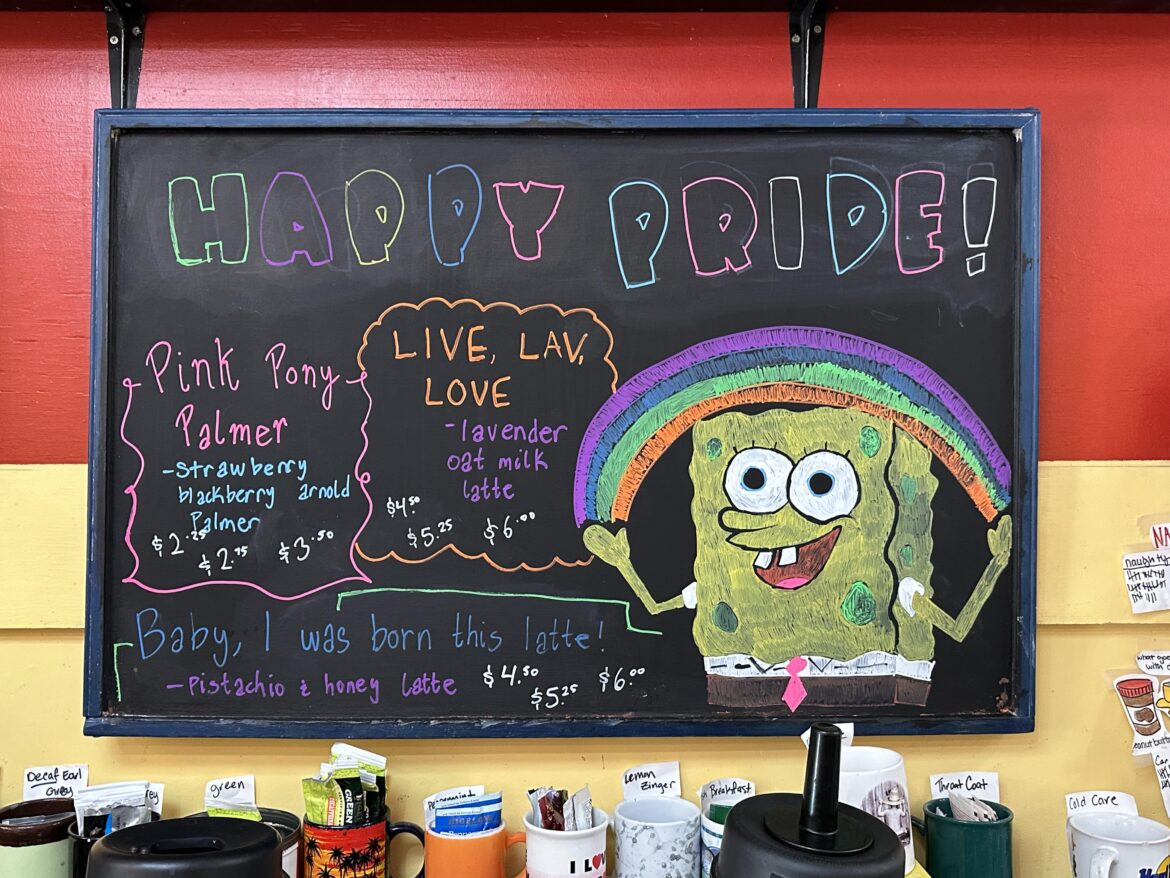 HAPPY PRIDE!
Pink Pony
Palmer
-Strawberry
blackberry arnold
Palmer
$2.25
$2.75
$3.50
LIVE, LAV,
LOVE
-lavender
oat milk
latte
$4.50
$5.25
$6.00
Baby, I was born this latte!
-Pistachio & honey latte
$4.50
$5.25
$6.00
NA
naughty
what goe
with c
eanut butt
Decaf Earl
Grey
green
GREEN
Lemon
Zinger
Breakfast
Throat Coat
Cold Care
I LOV